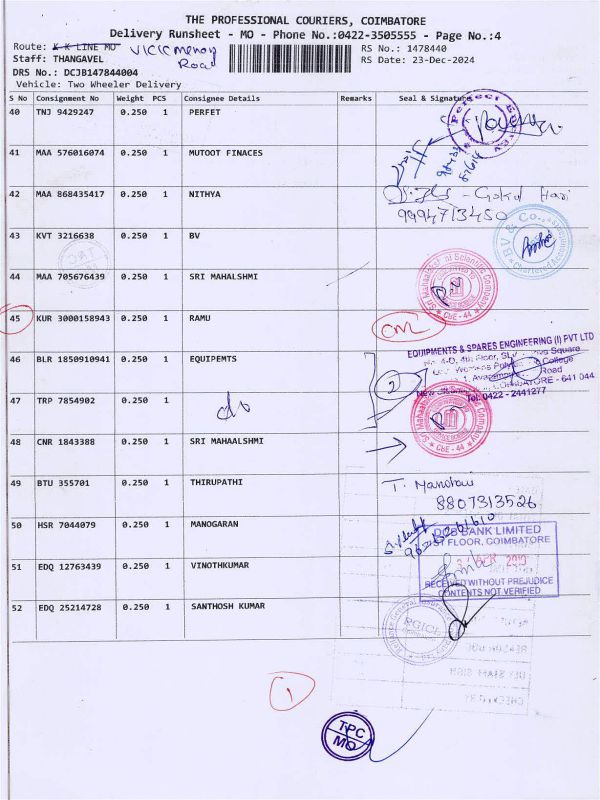 THE PROFESSIONAL COURIERS, COIMBATORE
Delivery Runsheet - MO - Phone No.:0422-3505555 - Page No.:4
Route: K K LINE MO
Road
RS No.: 1478440
Staff: THANGAVEL
RS Date: 23-Dec-2024
DRS No.: DCJB147844004
Vehicle: Two Wheeler Delivery
S No Consignment No Weight PCS Consignee Details Remarks Seal & Signature
40 TNJ 9429247 0.250 1 PERFET
41 MAA 576016074 0.250 1 MUTOOT FINACES
42 MAA 868435417 0.250 1 NITHYA
Gokul Hari
9994713450
43 KVT 3216638 0.250 1 BV
BV & Co.,
Chartered Accountants
44 MAA 705676439 0.250 1 SRI MAHALSHMI
Scientific Company
CBE - 44
45 KUR 3000158943 0.250 1 RAMU
46 BLR 1850910941 0.250 1 EQUIPEMTS
EQUIPMENTS & SPARES ENGINEERING (I) PVT LTD
4th Floor,
Square
College
Road
COIMBATORE - 641 044
Tel: 0422 - 2441277
2
47 TRP 7854902 0.250 1
do
48 CNR 1843388 0.250 1 SRI MAHAALSHMI
CBE - 44
49 BTU 355701 0.250 1 THIRUPATHI
8807313526
50 HSR 7044079 0.250 1 MANOGARAN
DCB BANK LIMITED
FLOOR, COIMBATORE
RECEIVED WITHOUT PREJUDICE
CONTENTS NOT VERIFIED
51 EDQ 12763439 0.250 1 VINOTHKUMAR
52 EDQ 25214728 0.250 1 SANTHOSH KUMAR
Reliance General Insurance
RGICL
1
TPC
MO